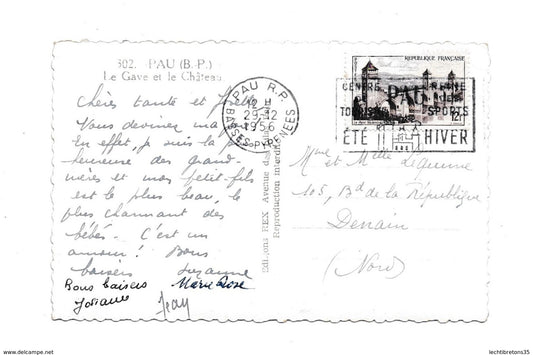 302. PAU (B.-P.)
Le Gave et le Château
Chères tante et
Vous devinez ma
En effet, je suis la plus
heureuse des grand-
mères et mon petit-fils
est le plus beau, le
plus charmant des
bébés. C'est un
amour ! Bons
baisers Suzanne
Bons baisers Marie Rose
Josiane Jean
PAU R.P.
12 H
29-12
1956
BASSES-PYRENEES
Editions REX Avenue des
Reproduction interdite
REPUBLIQUE FRANÇAISE
12F
CENTRE PAU
TOURISME SPORTS
ÉTÉ HIVER
Mme et Mlle
105, Bd de la République
Denain
(Nord)
lechtibretons35
www.delcampe.net